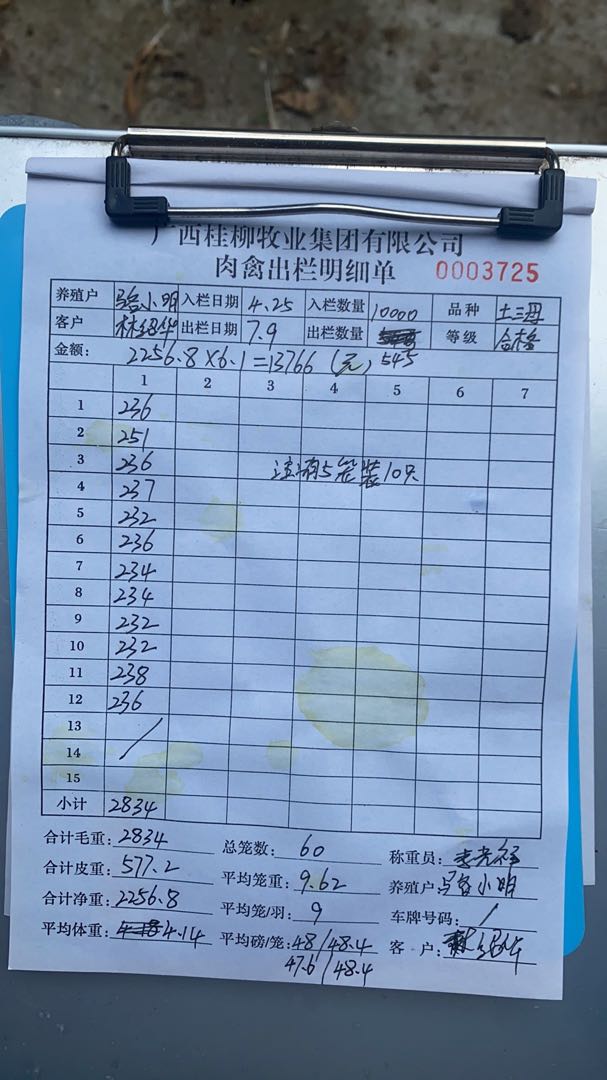 广西桂柳牧业集团有限公司
肉禽出栏明细单 0003725
养殖户 骆小明 入栏日期 4.25 入栏数量 10000 品种 土三母
客户 林绍华 出栏日期 7.9 出栏数量 545 等级 合格
金额: 2256.8×6.1=13766(元)
1 2 3 4 5 6 7
1 236
2 251
3 236 注:有5笼装10只
4 237
5 232
6 236
7 234
8 234
9 232
10 232
11 238
12 236
13
14
15
小计 2834
合计毛重: 2834 总笼数: 60 称重员:
合计皮重: 577.2 平均笼重: 9.62 养殖户: 骆小明
合计净重: 2256.8 平均笼/羽: 9 车牌号码: /
平均体重: 4.14 平均磅/笼: 48/48.4 客户: 林绍华
47.6/48.4